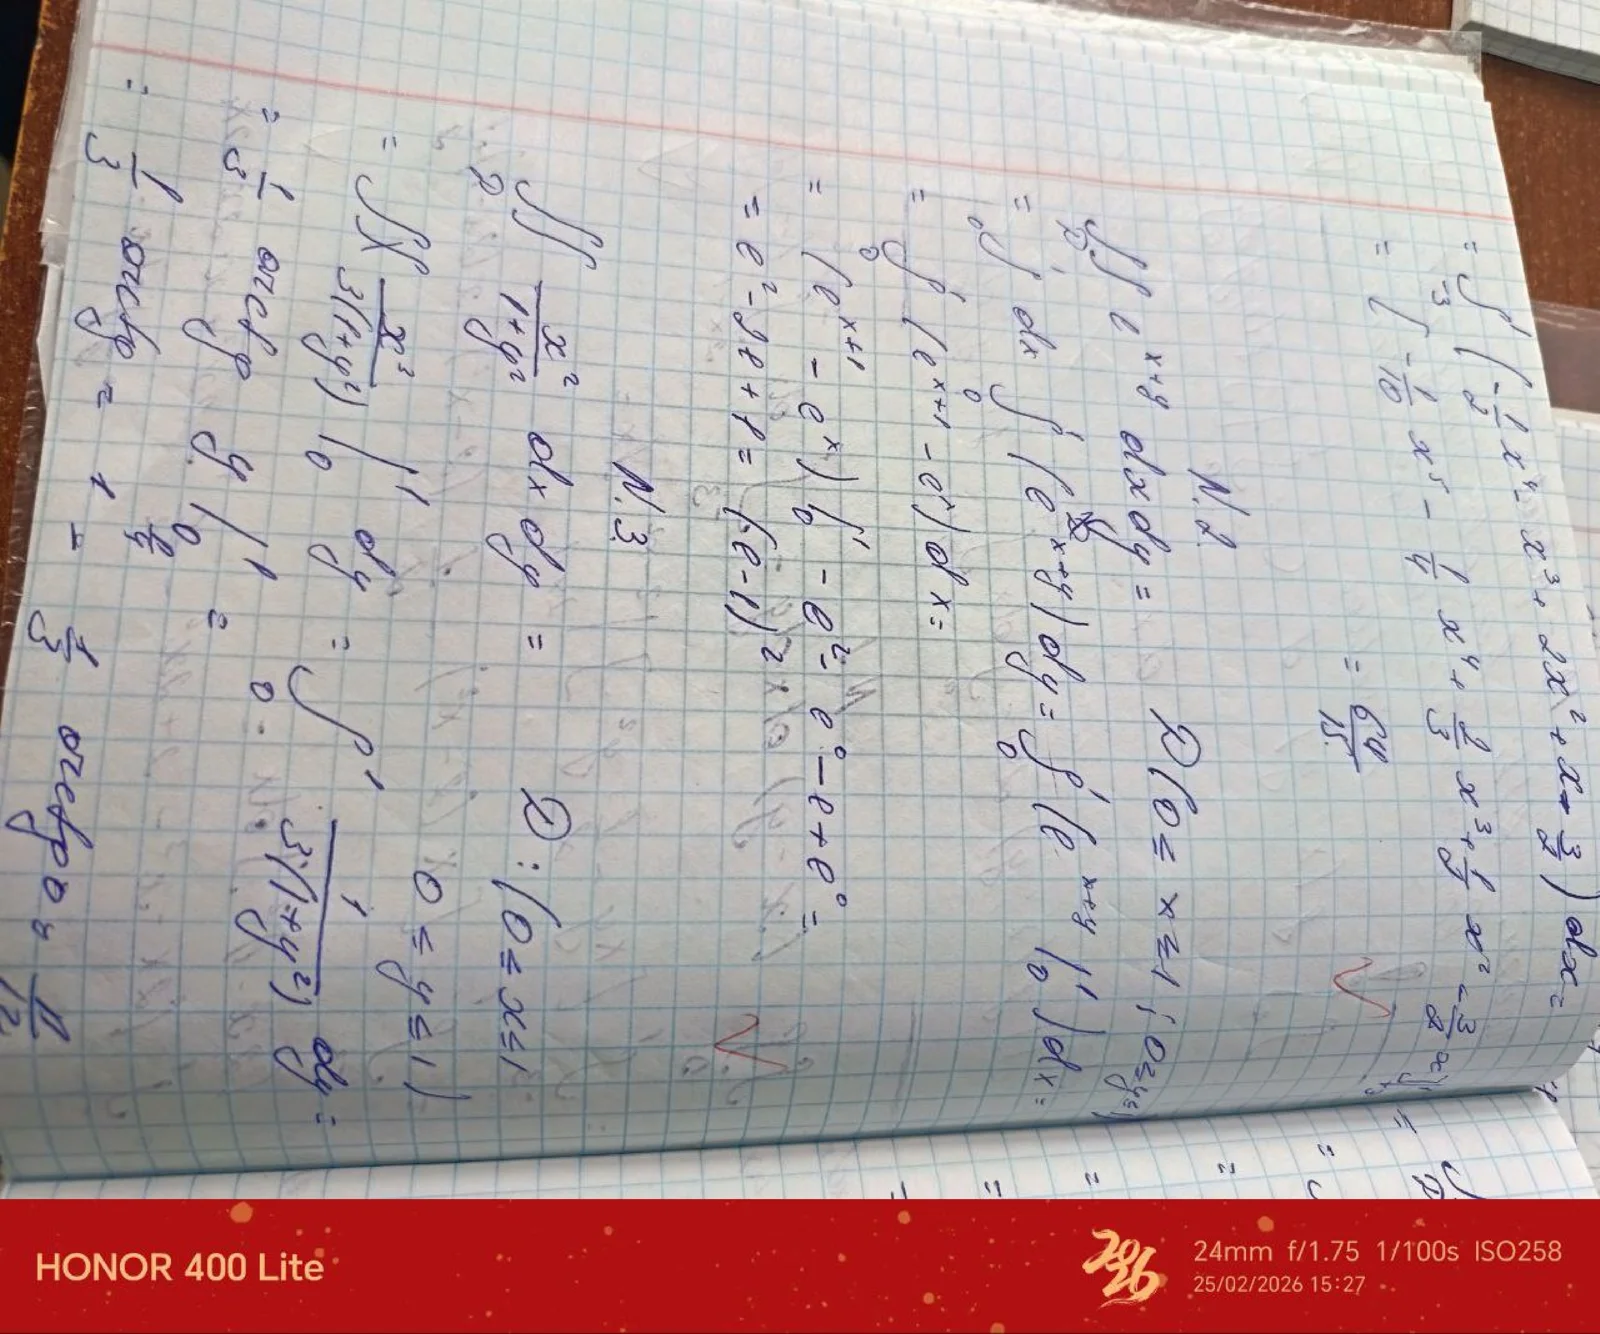 = ∫₋₃¹ (-1/2 x⁴ - x³ + 2x² + x - 3/2) dx =
= ( -1/10 x⁵ - 1/4 x⁴ + 2/3 x³ + 1/2 x² - 3/2 x
= 64/15.
N.2.
∬ e^(x+y) dx dy = D (0 ≤ x ≤ 1; 0 ≤ y ≤ 1)
= ∫₀¹ dx ∫₀¹ (e^(x+y)) dy = ∫₀¹ (e^(x+y) |₀¹) dx =
= ∫₀¹ (e^(x+1) - e^x) dx =
= (e^(x+1) - e^x) |₀¹ - e² - e⁰ - e + e⁰ =
= e² - 2e + 1 = (e-1)²
N.3.
∬_D x²/(1+y²) dx dy = D: (0 ≤ x ≤ 1
0 ≤ y ≤ 1)
= ∫ x³/3(1+y²) |₀¹ dy = ∫₀¹ 1/3(1+y²) dy =
= 1/3 arctg y |₀¹ =
= 1/3 arctg 1 - 1/3 arctg 0 = π/12
HONOR 400 Lite
2026
24mm f/1.75 1/100s ISO258
25/02/2026 15:27